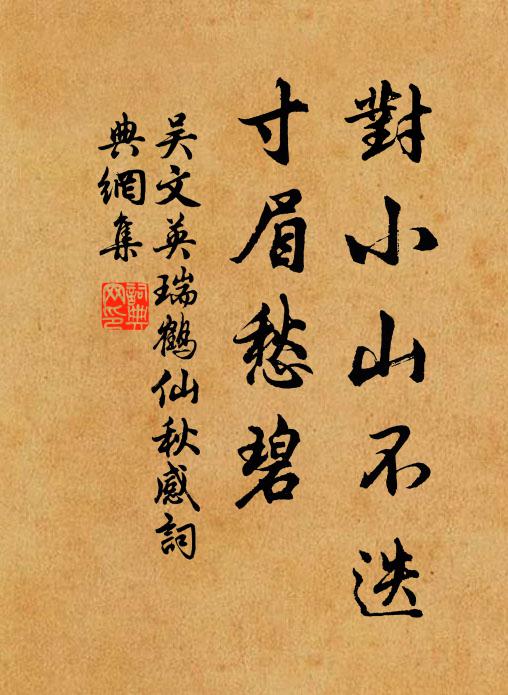 對小山不迭
寸眉愁碧
吴文英瑞鶴仙秋感詞
典網集
詞典網印